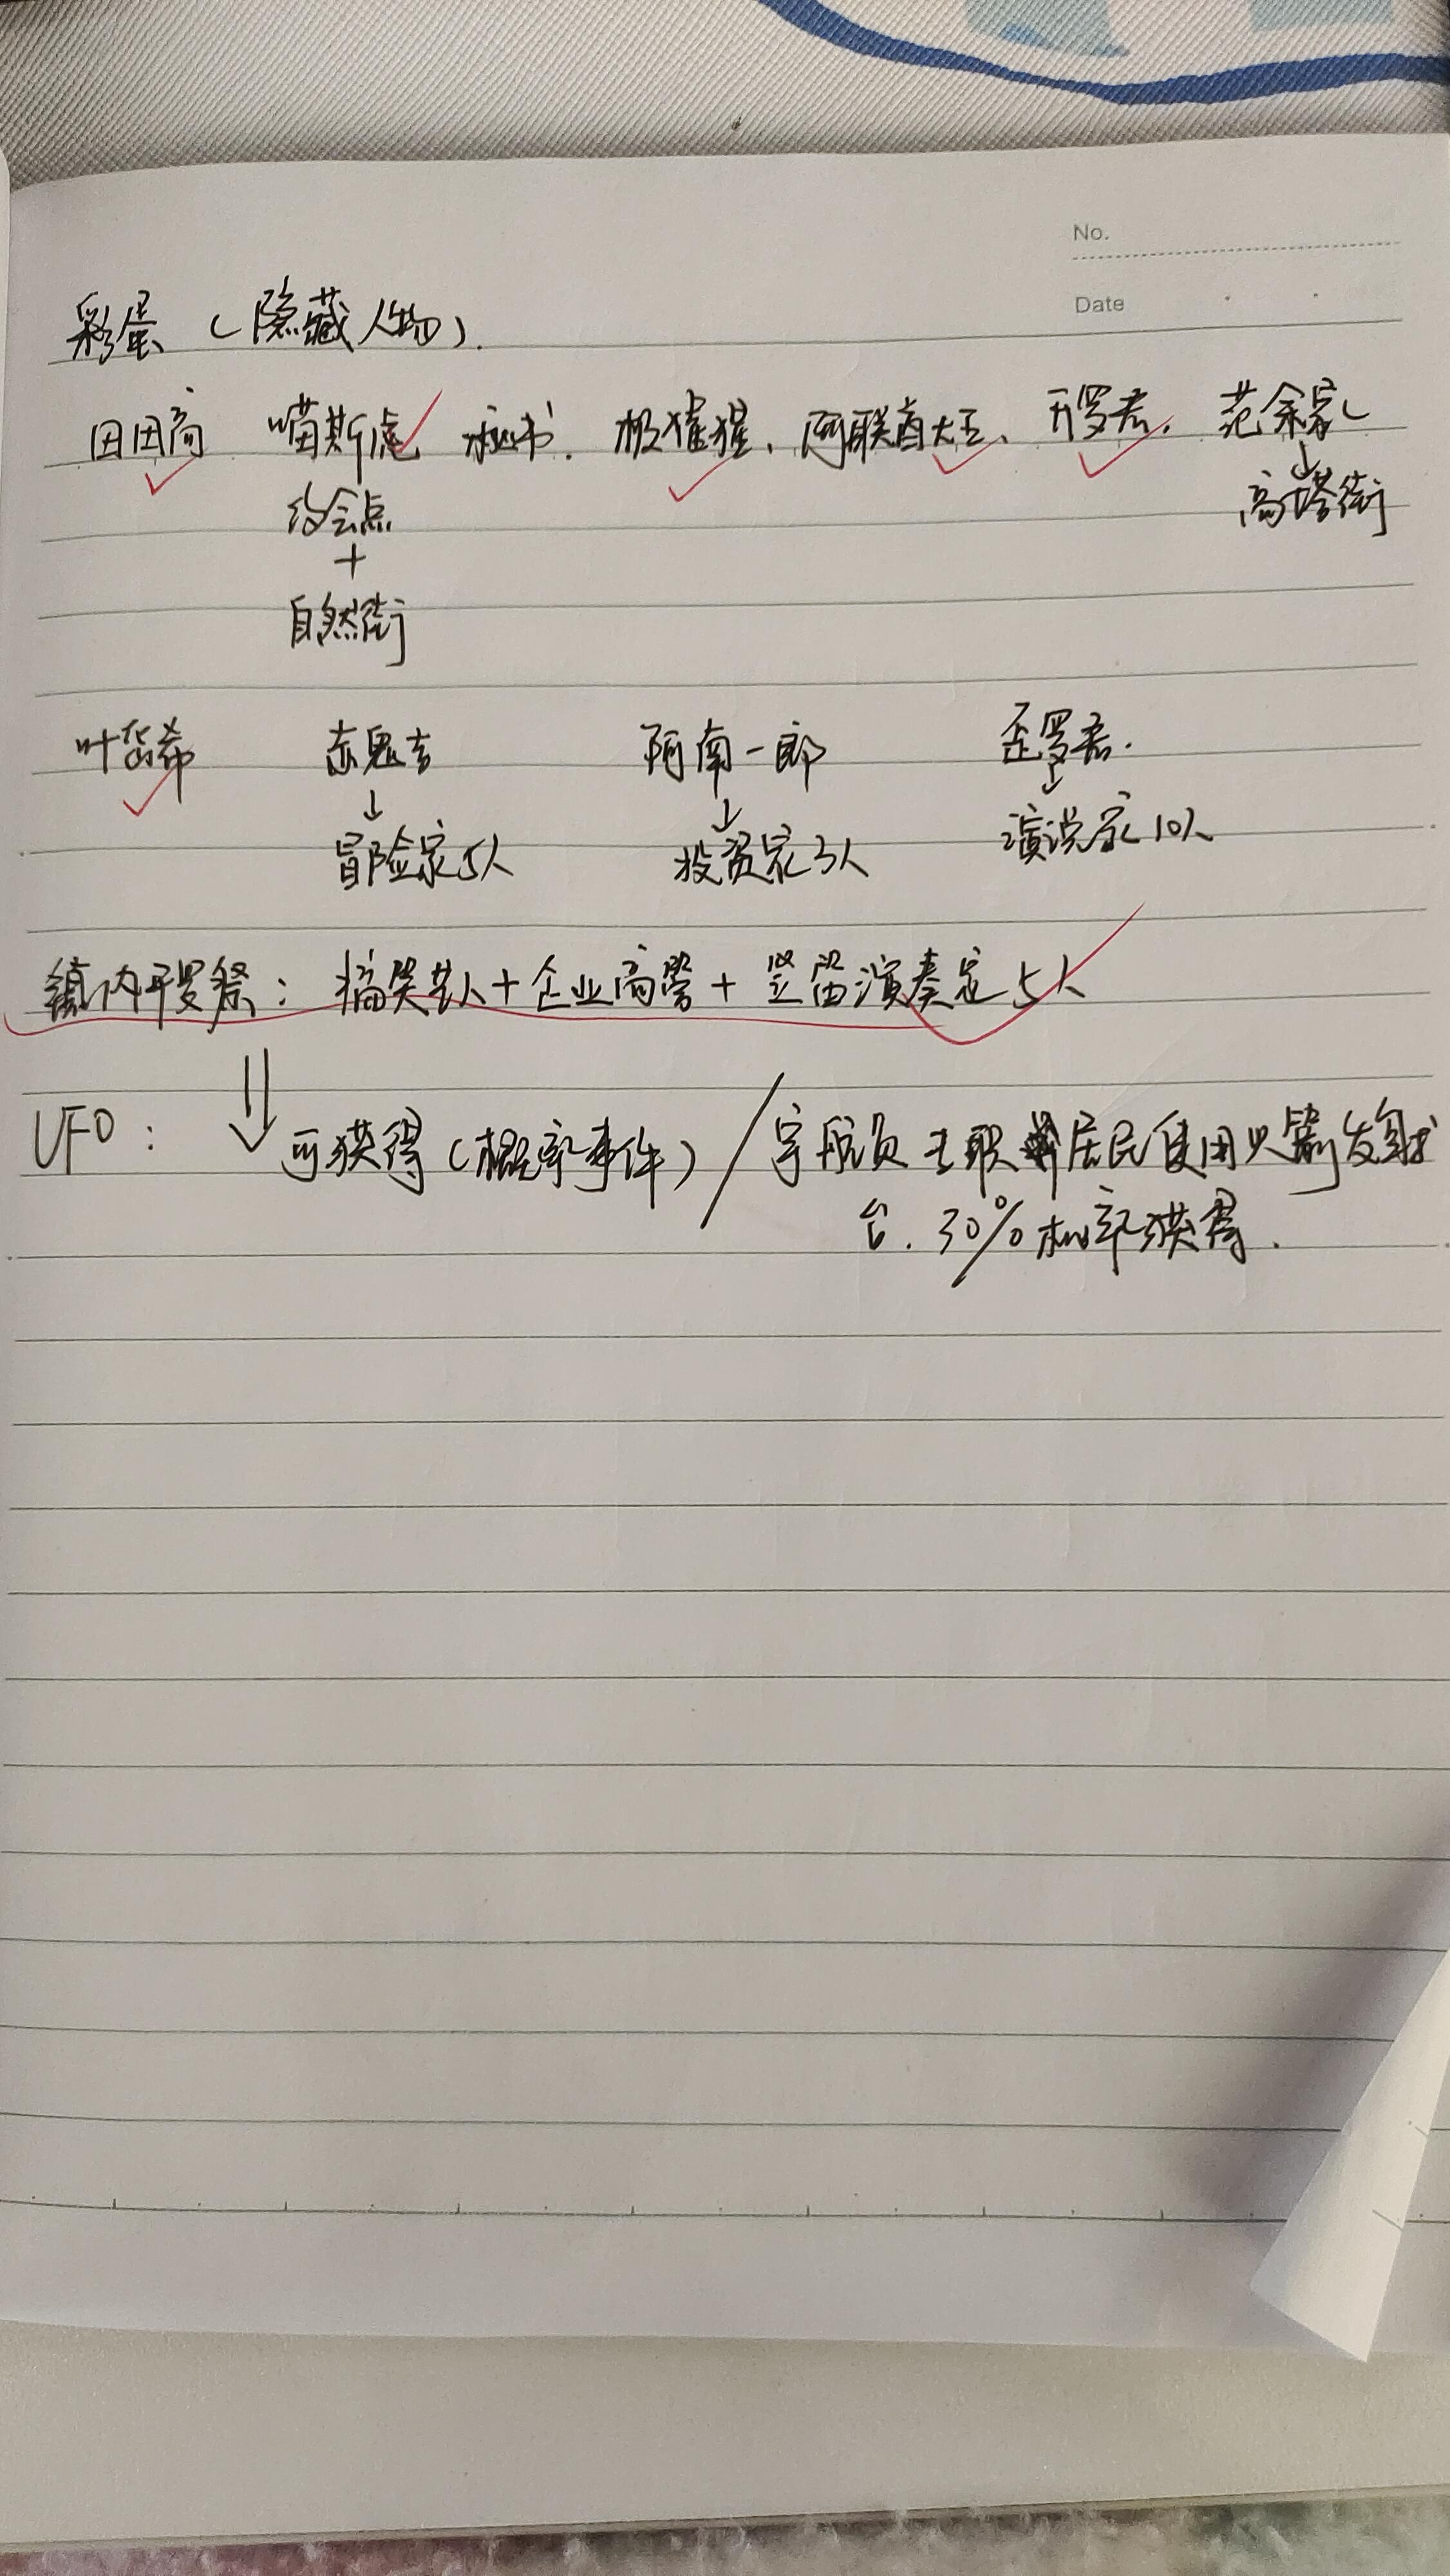 No.
Date
彩蛋（隐藏人物）.
因因商 喵斯 秘书. 极獾獾、阿联酋大王、开罗君. 范余家
↓
约会点 高塔街
+
自然街
叶岱希 赤鬼吉 阿南一郎 歪罗君.
↓ ↓ ↓
冒险家5人 投资家3人 演说家10人
镇内开罗祭： 搞笑艺人＋企业高管＋竖笛演奏家5人
UFO： 可获得（概率事件） / 宇航员主职居民使用火箭发射
台. 30%概率获得.